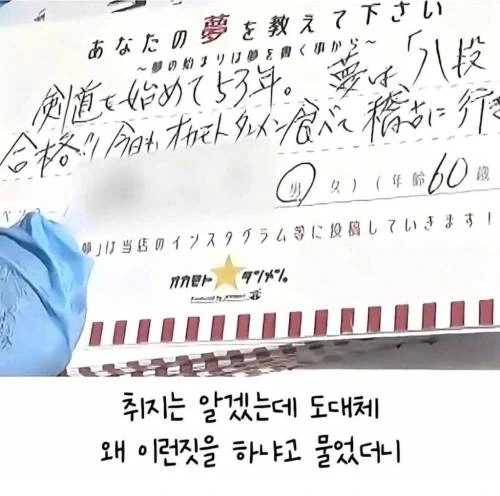 あなたの夢を教えて下さい
～夢の始まりは夢を書く事から～
剣道を始めて53年。夢は「八段
合格!! 今日もオカモトタンメン食べて稽古に行き
男 女）（年齢 60 歳
夢」は当店のインスタグラム等に投稿していきます！
オカモト タンメン。
Produced by
취지는 알겠는데 도대체
왜 이런짓을 하냐고 물었더니